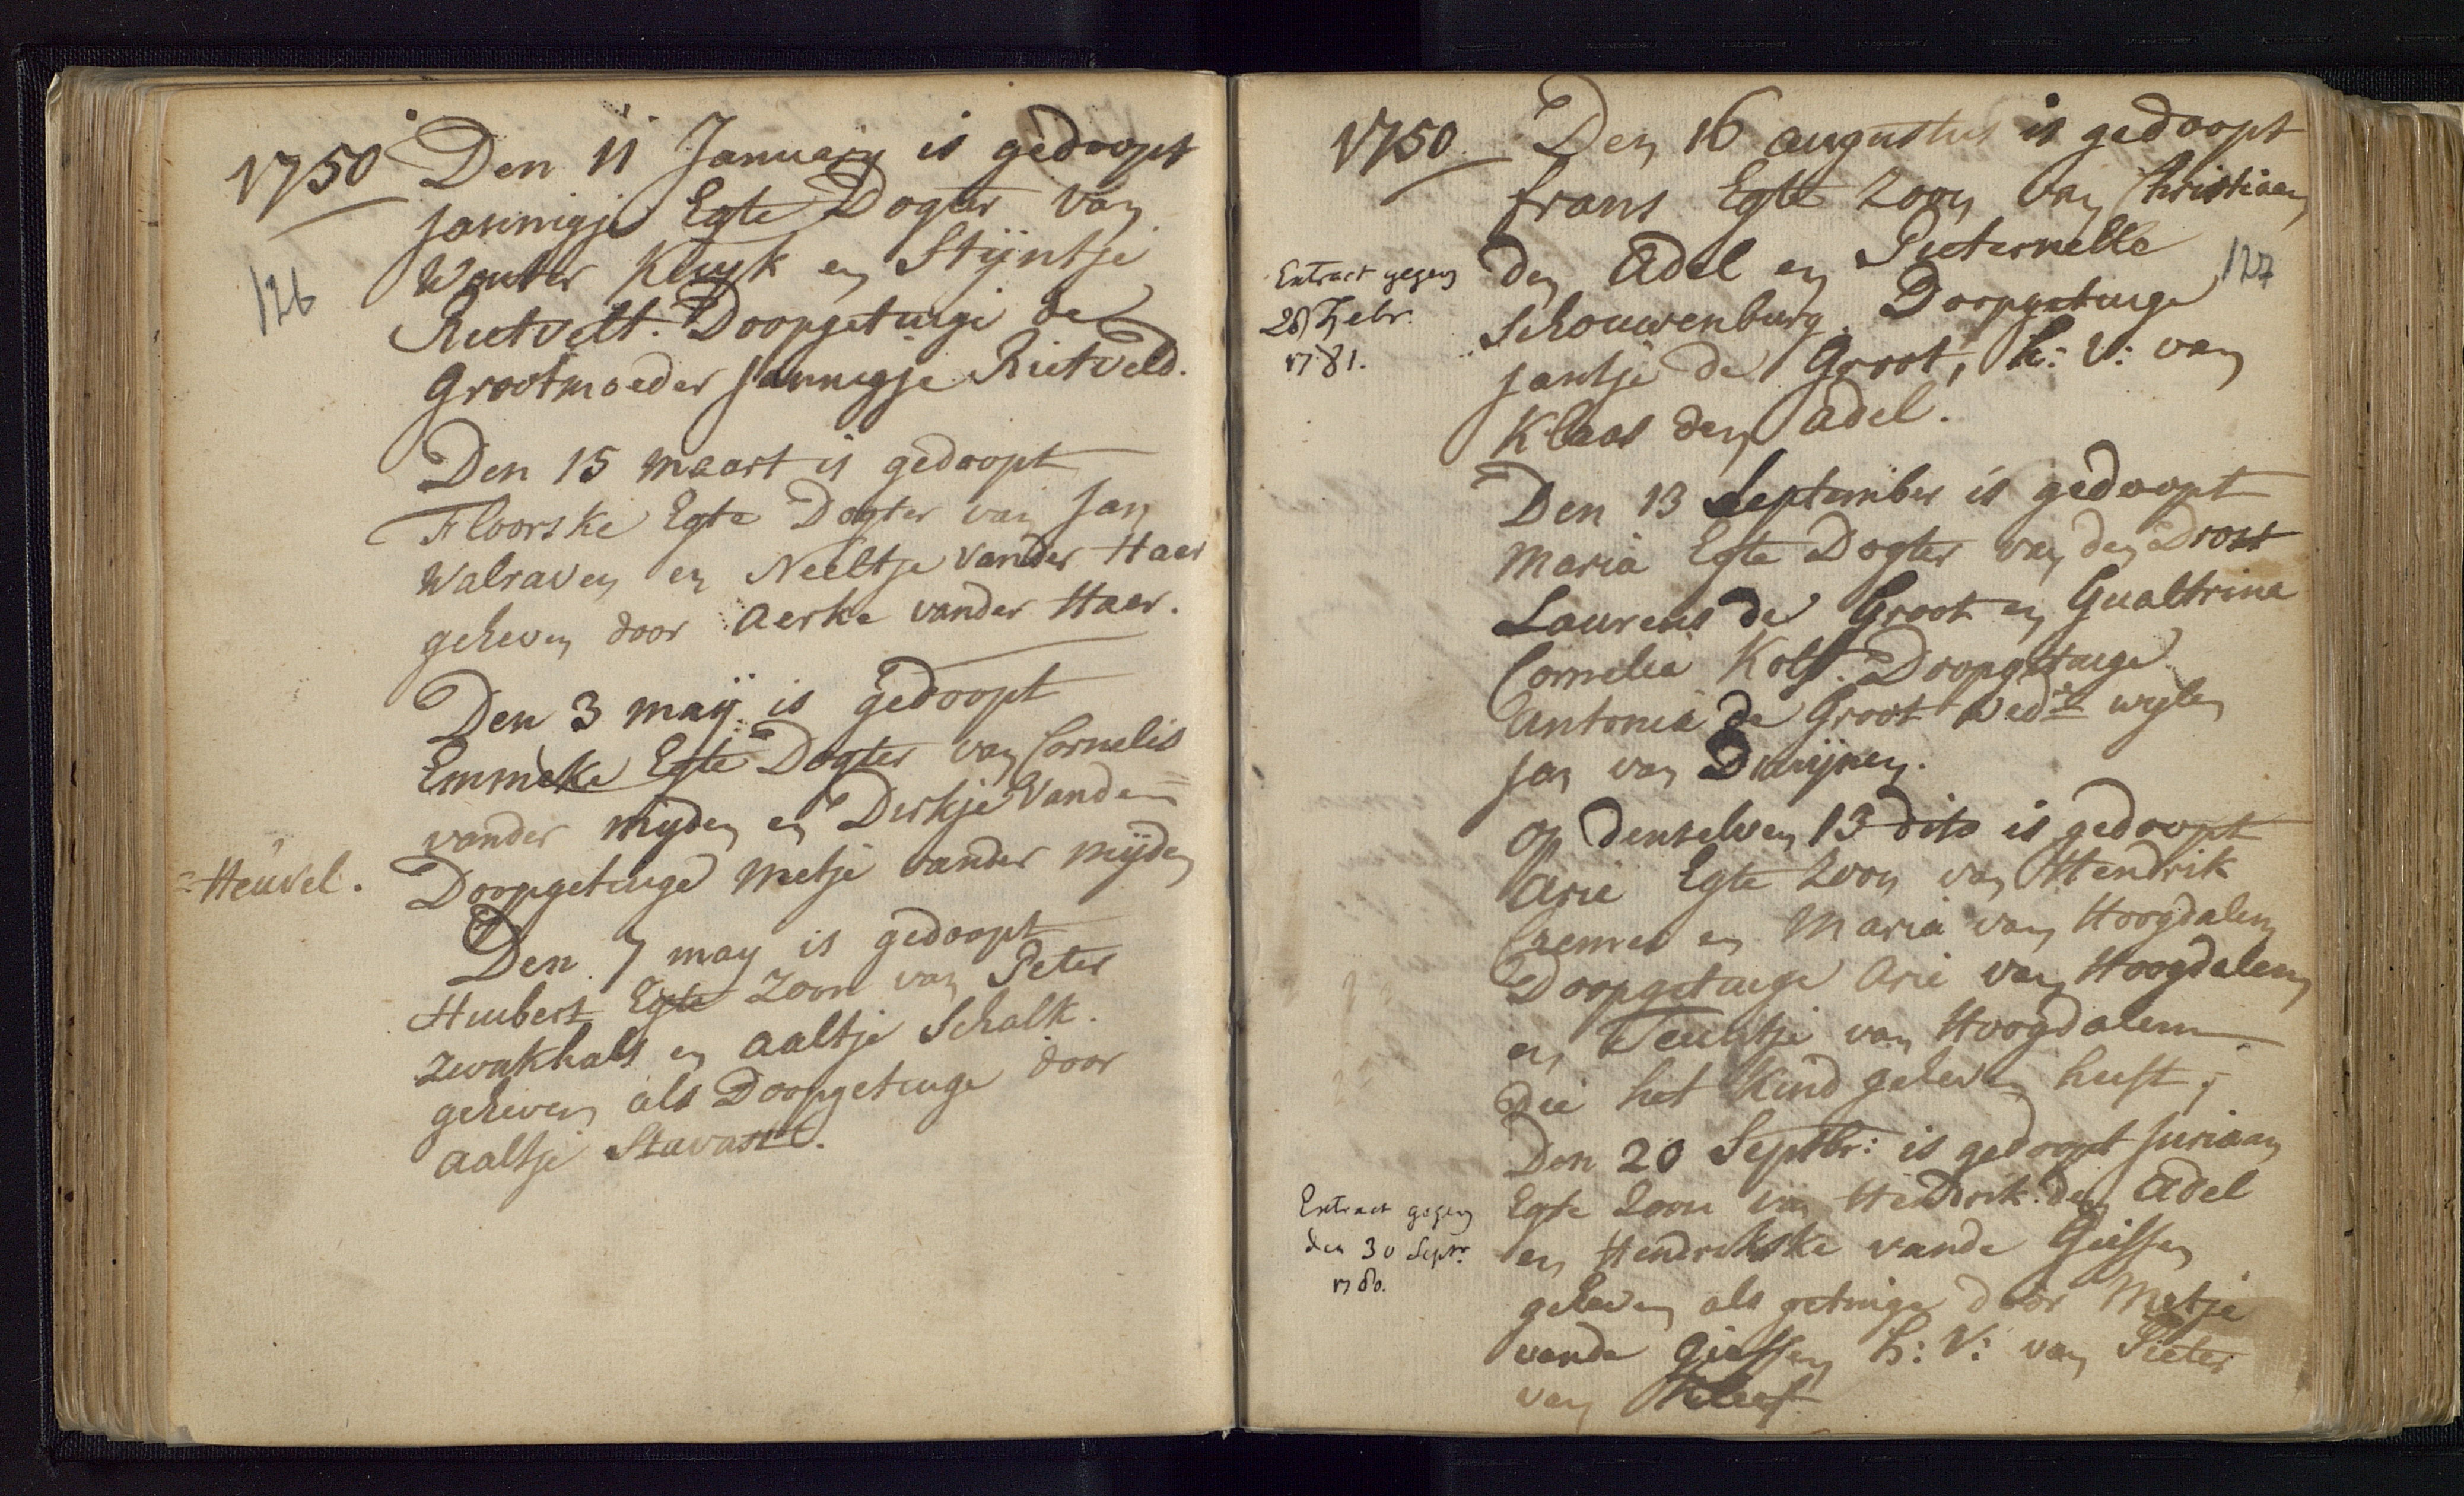 1750 Den 11 January is gedoopt
Jannigje Egte Dogter van
Wouter Kluyk en Stijntje
126
Rietvelt. Doopgetuige de
Grootmoeder Jannigje Rietveld.
Den 15 maart is gedoopt
Floorske Egte Dogter van Jan
Walraven en Neeltje vander Haer
geheven door Aerke vander Haer.
Den 3 maÿ is gedoopt
Emmeke Egte Dogter van Cornelis
vander mijden en Dirkje Vanden=
=Heuvel.
Doopgetuige Metje vander mijden
Den 7 may is gedoopt
Huibert Egte Zoon van Peter
Zwakhals en Aaltje Schalk.
geheven als Doopgetuige door
Aaltje Stavast.
1750. Den 16 augustus is gedoopt
frans Egte Zoon van Christiaan
den Adel en Pieternella
127
Extract gegeven
28 Febr.
1781.
Schouwenburg. Doopgetuige
Jantje de Groot, h: v: van
Klaas den Adel.
Den 13 September is gedoopt
Maria Egte Dogter van den Drost
Laurens de Groot en Gualtrina
Cornelia Kolf. Doopgetuige
Antonia de Groot Wede wylen
Jan van Duijnen.
Op denselven 13 dito is gedoopt
Arie Egte Zoon van Hendrik
Cremer en Maria van Hoogdalem
Doopgetuige Arie van Hoogdalem
en Teuntje van Hoogdalem
die het Kind geheven heeft;
Den 20 Septbr: is gedoopt Juriaan
Egte Zoon van Hendrik den Adel
Extract gegeven
den 30 Septr.
1780.
en Hendrikske vande Giessen
geheven als getuige door Metje
vande Giessen h: v: van Pieter
van Kleef